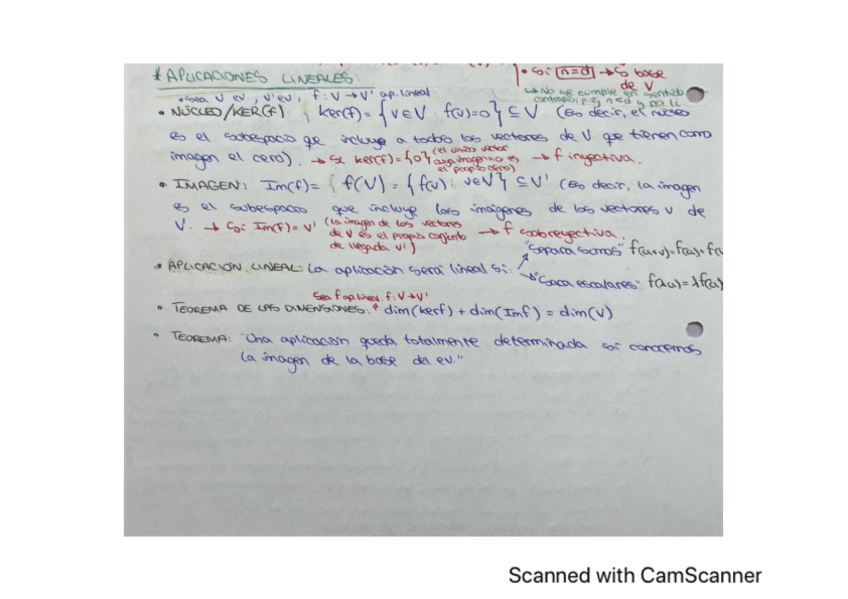 • Si n=d → S base
de V
* APLICACIONES LINEALES:
↳ No se cumple en sentido
• Sea V ev, V' ev, f: V → V' ap. lineal
• NÚCLEO/KER(f): ker(f) = { v ∈ V : f(v)=0 } ⊆ V (Es decir, el núcleo
es el subespacio que incluye a todos los vectores de V que tienen como
imagen el cero). → Si ker(f) = {0} (el único vector cuya imagen=0 es el propio cero) → f inyectiva.
• IMAGEN: Im(f) = f(V) = { f(v) : v∈V } ⊆ V' (Es decir, la imagen
es el subespacio que incluye las imágenes de los vectores v de
V. → Si Im(f) = V' (la imagen de los vectores de V es el propio conjunto de llegada V') → f sobreyectiva.
"Separa sumas" f(u+v)=f(u)+f(
• APLICACIÓN LINEAL: La aplicación será lineal si:
"Saca escalares" f(λu) = λf(u)
Sea f ap lineal f: V → V'
• TEOREMA DE LAS DIMENSIONES: dim(kerf) + dim(Imf) = dim(V)
• TEOREMA: "Una aplicación queda totalmente determinada si conocemos
la imagen de la base del ev."
Scanned with CamScanner